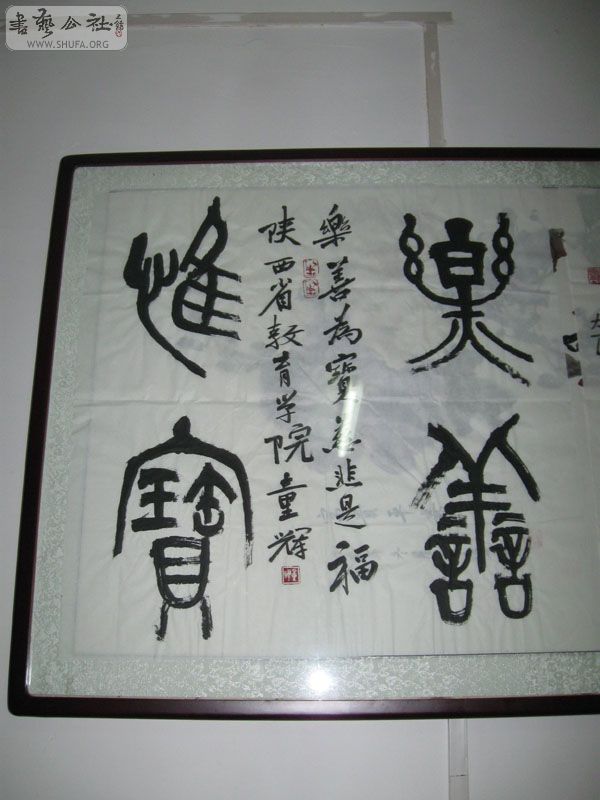 書藝公社
WWW.SHUFA.ORG
樂善
惟寶
樂善為寶慈悲是福
陕西省教育学院童輝